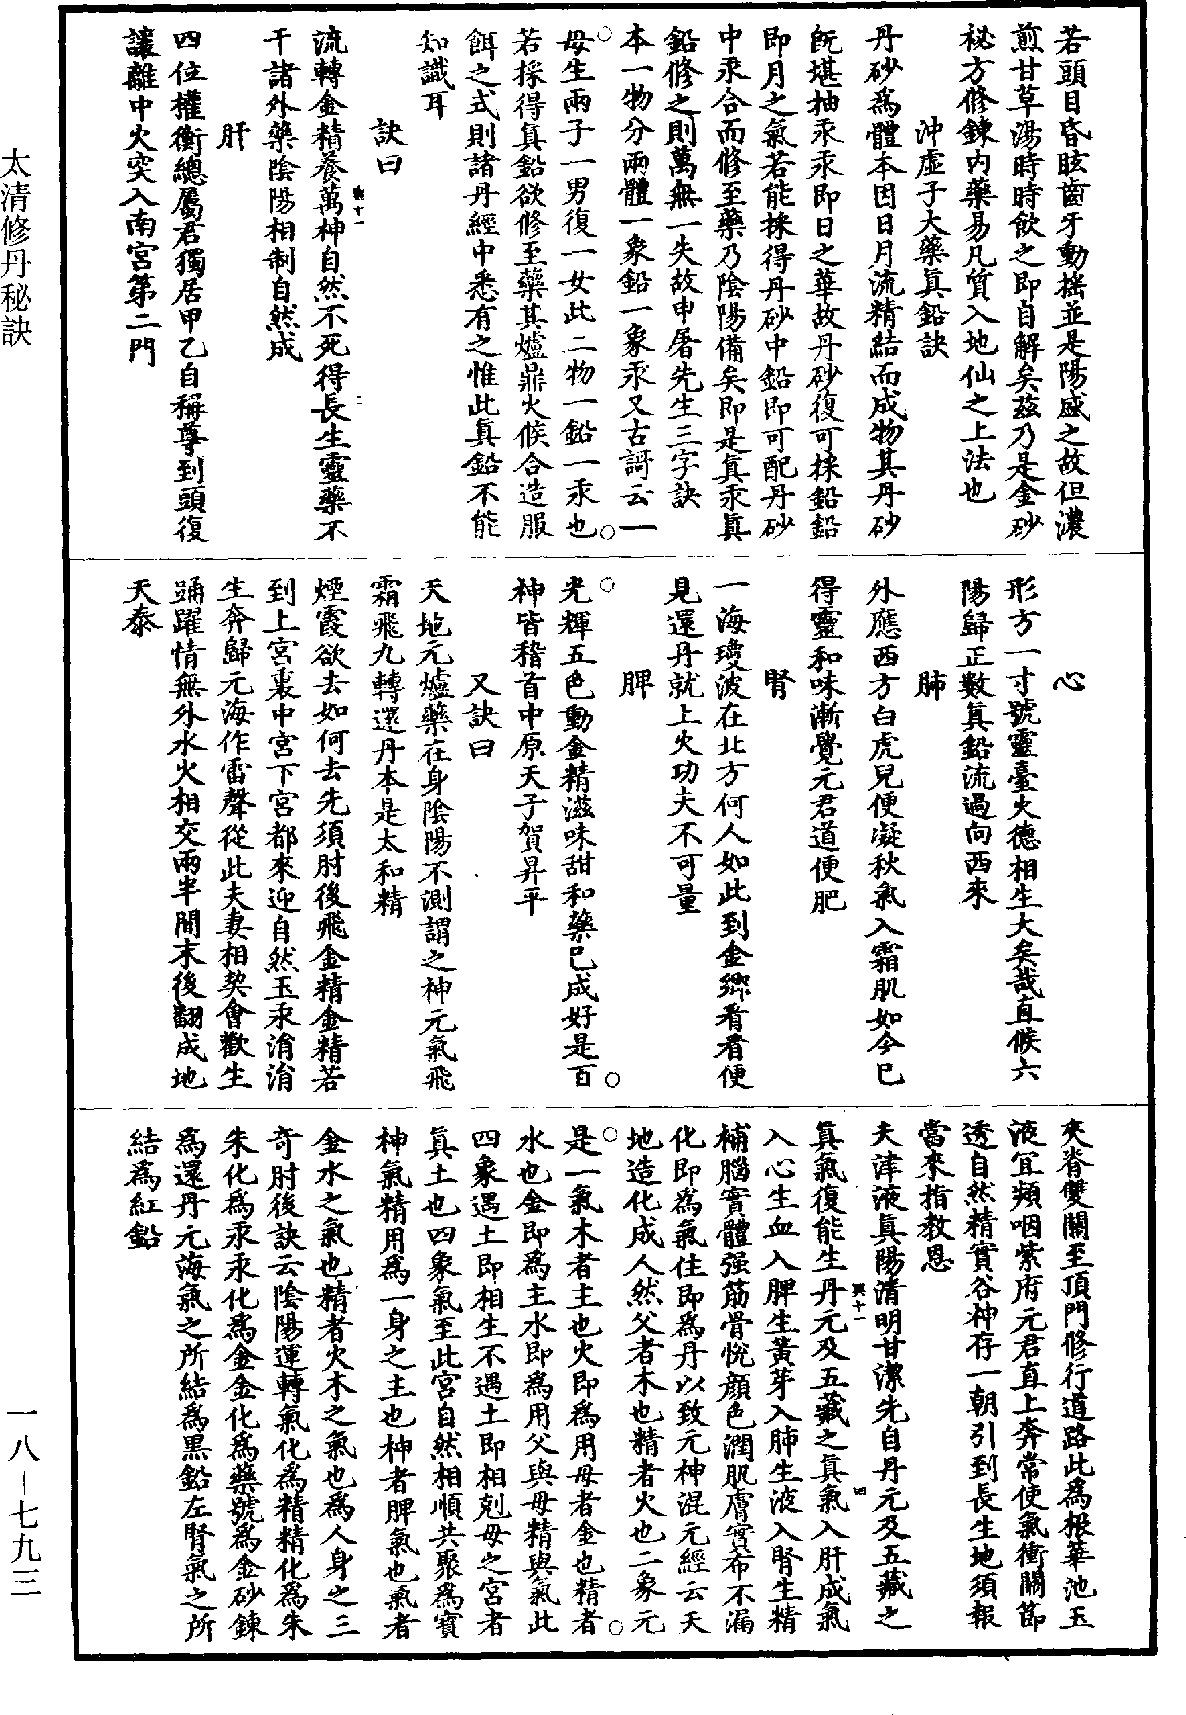 若頭目昏眩齒牙動揺並是陽盛之故但濃
煎甘草湯時時飲之即自解矣茲乃是金砂
祕方修鍊内藥易凡質入地仙之上法也
沖虛子大藥眞鉛訣
丹砂爲體本因日月流精結而成物其丹砂
旣堪抽汞汞即日之華故丹砂復可採鉛鉛
即月之氣若能採得丹砂中鉛即可配丹砂
中汞合而修至藥乃陰陽備矣即是眞汞眞
鉛修之則萬無一失故申屠先生三字訣
本一物分兩體一象鉛一象汞又古謌云一
母生兩子一男復一女此二物一鉛一汞也
若採得眞鉛欲修至藥其爐鼎火候合造服
餌之式則諸丹經中悉有之惟此眞鉛不能
知識耳
訣曰
流轉金精養萬神自然不死得長生靈藥不
干諸外藥陰陽相制自然成
肝
四位權衡總屬君獨居甲乙自稱尊到頭復
讓離中火突入南宮第二門
心
形方一寸號靈臺火德相生大矣哉直候六
陽歸正數眞鉛流過向西來
肺
外應西方白虎兒便凝秋氣入霜肌如今已
得靈和味漸覺元君道便肥
腎
一海瓊波在北方何人如此到金鄉看看便
見還丹就上火功夫不可量
脾
光輝五色動金精滋味甜和藥已成好是百
神皆稽首中原天子賀昇平
又訣曰
天地元爐藥在身陰陽不測謂之神元氣飛
霜飛九轉還丹本是太和精
煙霞欲去如何去先須肘後飛金精金精若
到上宮裏中宮下宮都來迎自然玉汞涓涓
生奔歸元海作雷聲從此夫妻相契會歡生
踊躍情無外水火相交兩半間末後翻成地
天泰
夾脊雙關至頂門修行道路此爲根華池玉
液冝頻咽紫府元君直上奔常使氣衝關節
透自然精實谷神存一朝引到長生地須報
當來指教恩
夫津液眞陽清明甘潔先自丹元及五藏之
眞氣復能生丹元及五藏之眞氣入肝成氣
入心生血入脾生黃芽入肺生液入腎生精
補腦實體强筋骨悅顏色潤肌膚實布不漏
化即爲氣住即爲丹以致元神混元經云天
地造化成人然父者木也精者火也二象元
是一氣木者主也火即爲用母者金也精者
水也金即爲主水即爲用父與母精與氣此
四象遇土即相生不遇土即相剋母之宮者
眞土也四象氣至此宮自然相順共聚爲寶
神氣精用爲一身之主也神者脾氣也氣者
金水之氣也精者火木之氣也爲人身之三
奇肘後訣云陰陽運轉氣化爲精精化爲朱
朱化爲汞汞化爲金金化爲藥號爲金砂鍊
爲還丹元海氣之所結爲黑鉛左腎氣之所
結爲紅鉛
太清修丹秘訣
一八－七九三